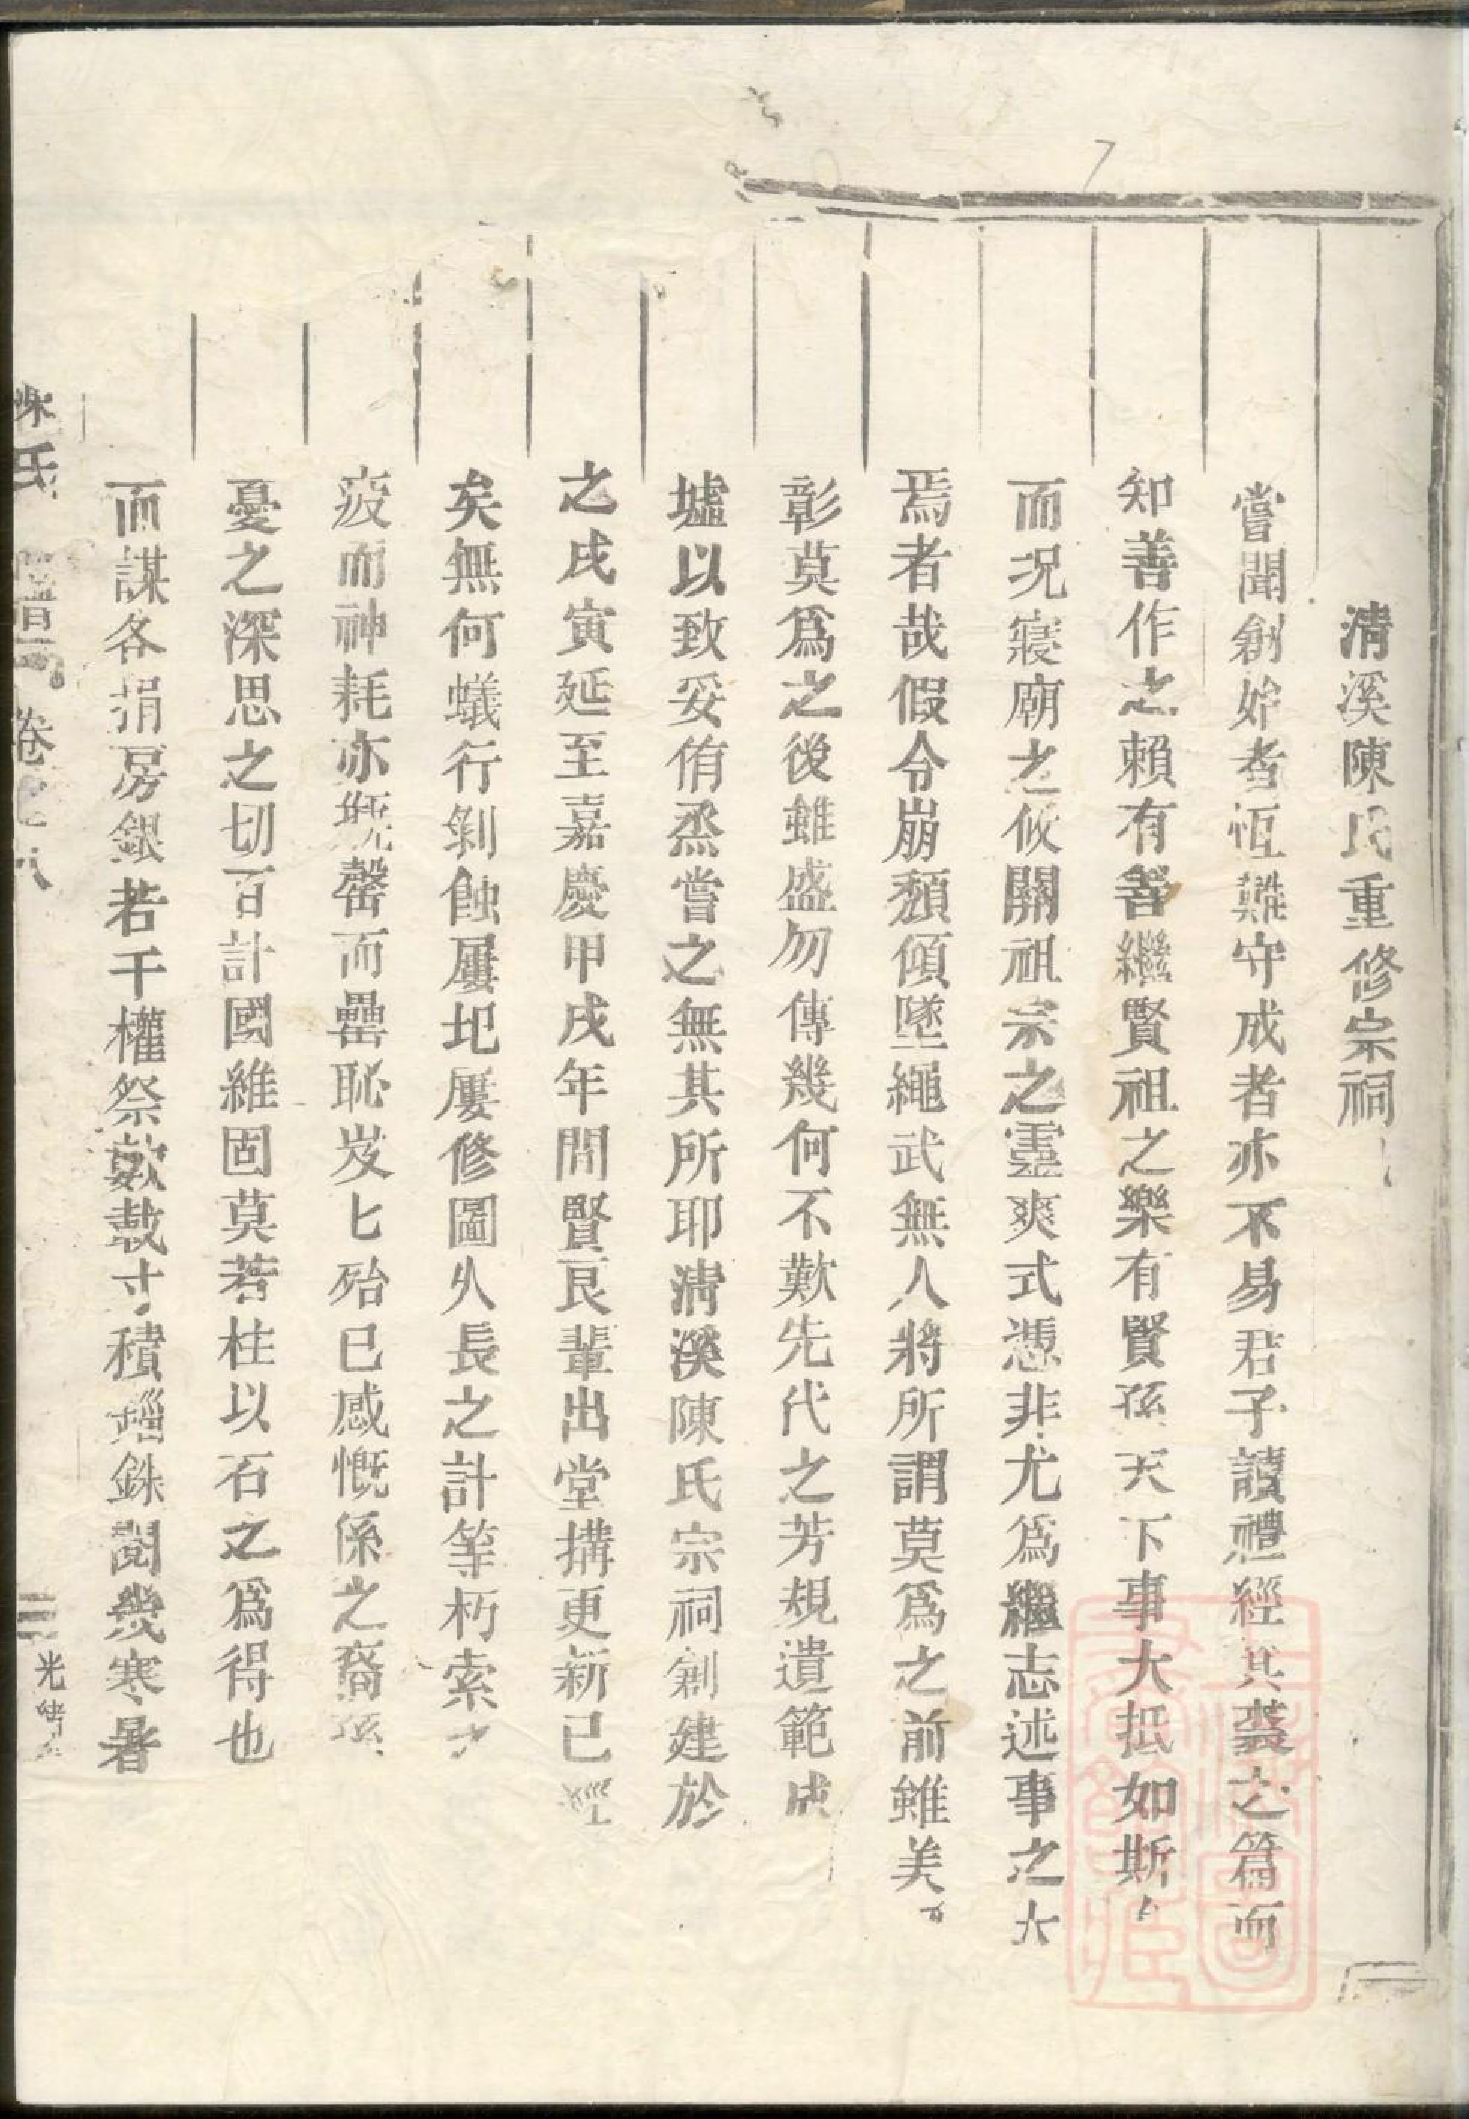 清溪陳氏重修宗祠
嘗聞創始者恆難守成者亦不易君子讀禮經其裘之篇而
知善作之賴有善繼賢祖之樂有賢孫天下事大抵如斯
而況寢廟之攸關祖宗之靈爽式憑非尤爲繼志述事之大
焉者哉假令崩頹傾墜繩武無人將所謂莫爲之前雖美
彰莫爲之後雖盛勿傳幾何不歎先代之芳規遺範成
墟以致妥侑烝嘗之無其所耶清溪陳氏宗祠創建於
之戌寅延至嘉慶甲戌年間賢良輩出堂搆更新已經
矣無何蟻行剝蝕屢圯屢修圖久長之計等朽索之
疲而神耗亦甁罄而罍恥岌匕殆已感慨係之裔孫
憂之深思之切百計國維固莫若柱以石之爲得也
而謀各捐房銀若干權祭歎載寸積錙銖閱幾寒暑
陳氏譜 卷之八 三 光裕堂